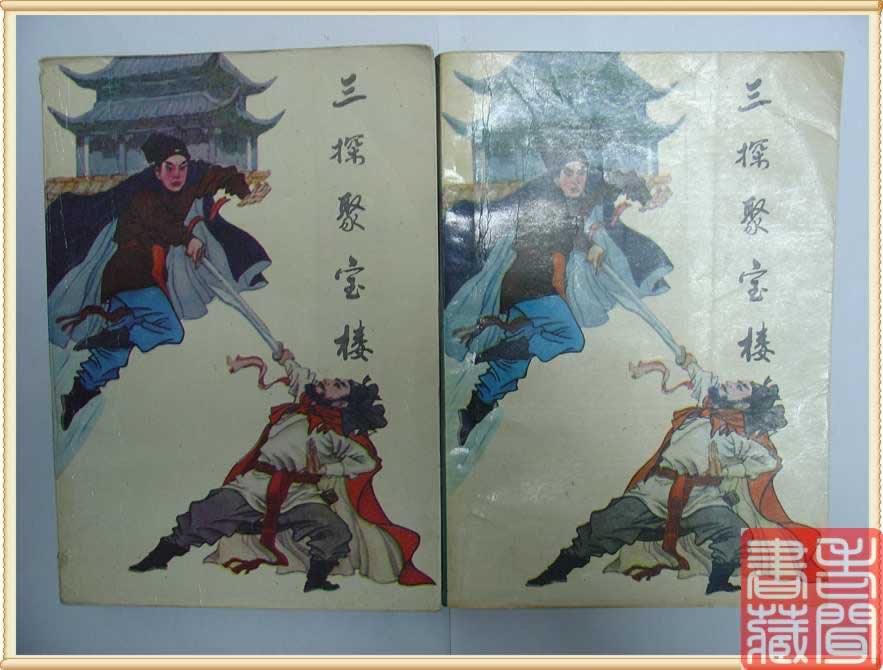 三探聚宝楼
三探聚宝楼
書藏